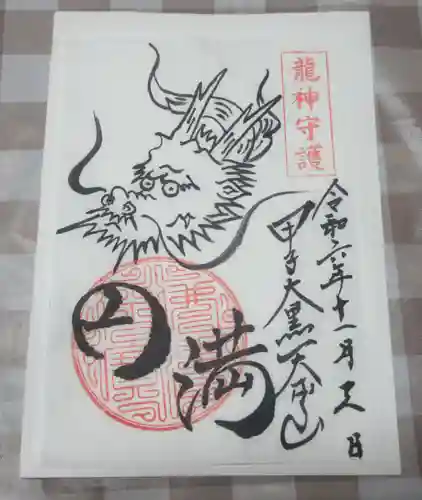 龍神守護
令和六年十一月六日
甲子大黒天本山
円満